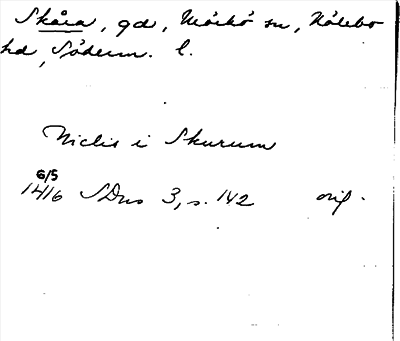 Skåra, gd, Mörkö sn, Hölebo
hd, Söderm. l.
Niclis i Skurum
6/5
1416 SDns 3, s. 142 orig.